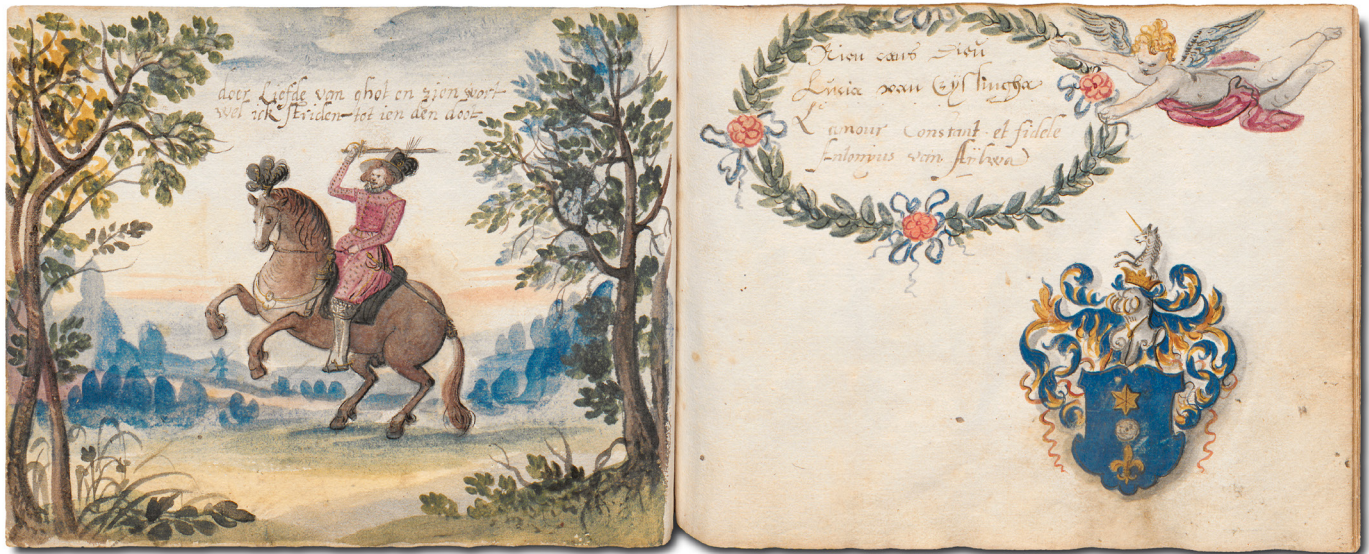 doer Liefde van ghot en zien wort
wel ick striden tot ien den doot
Rien sans Dieu
Luxia van Eyslingha
L'amour Constant et fidele
Antonyus van Aÿlwa